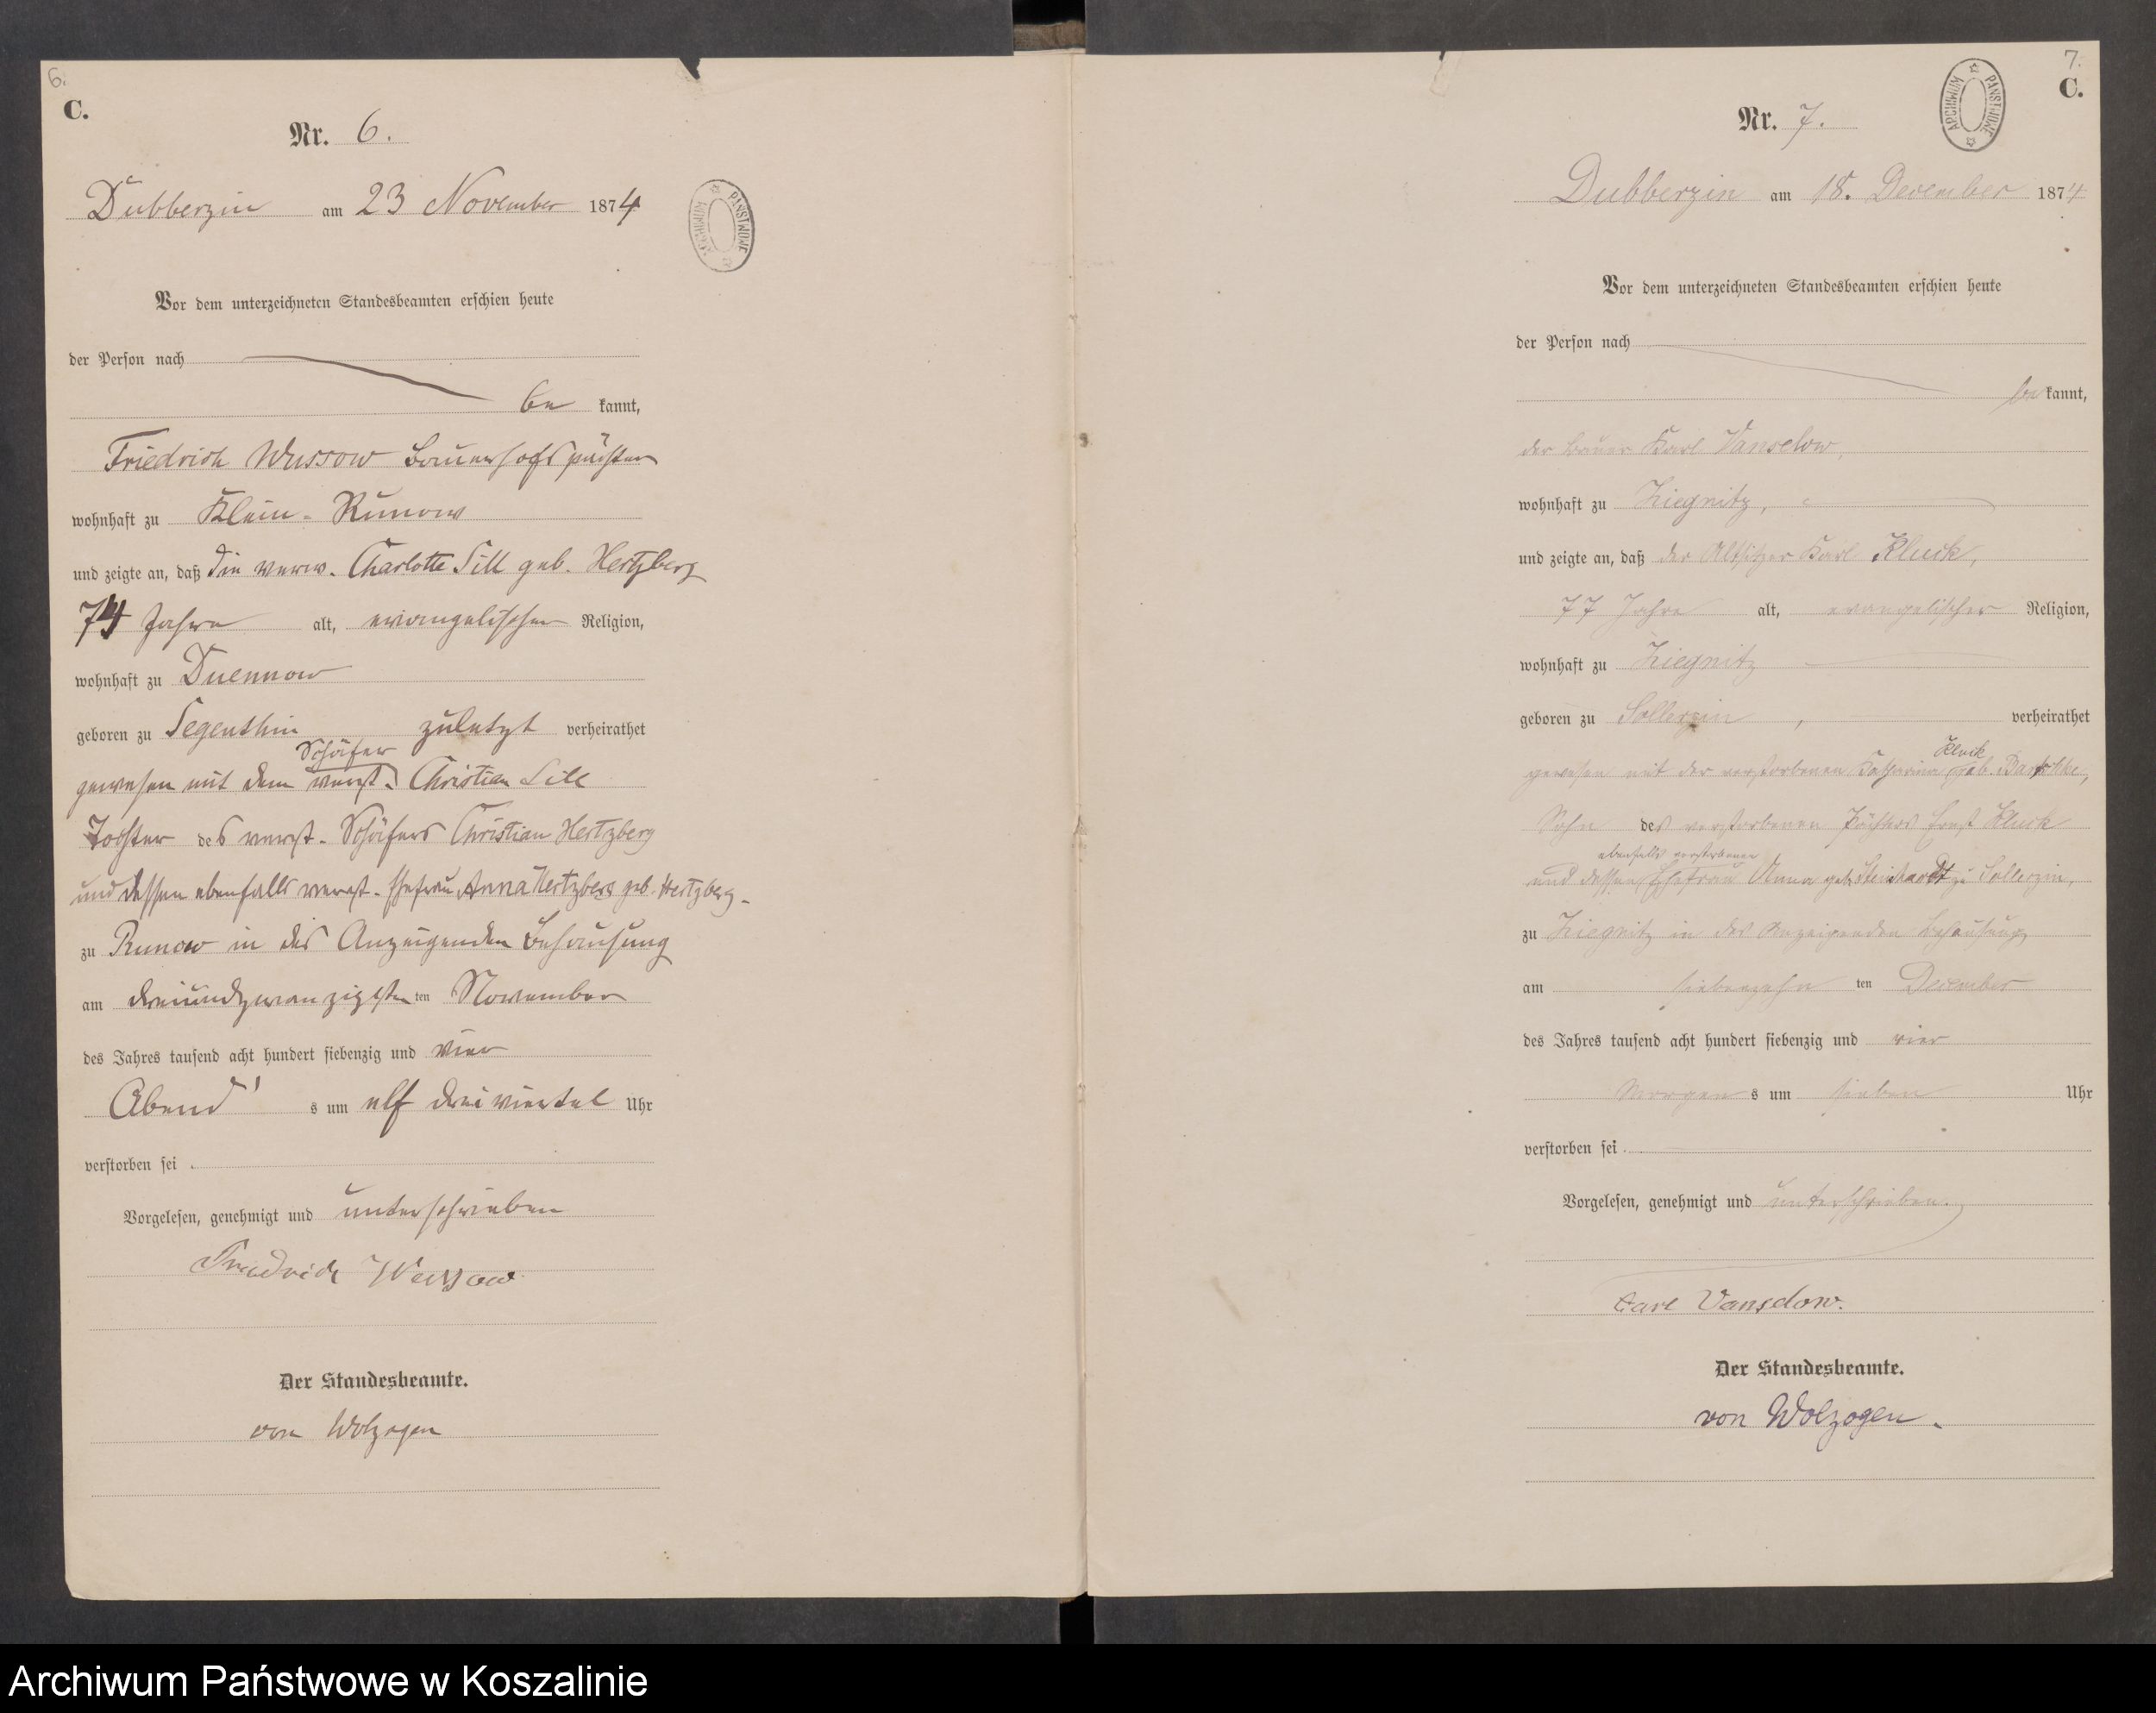 6.
C.
Nr. 6.
Dubberzin am 23 November 1874
ARCHIWUM PAŃSTWOWE
Vor dem unterzeichneten Standesbeamten erschien heute
der Person nach
be kannt,
Friedrich Wussow Bauerhofspächter
wohnhaft zu Klein-Runow
und zeigte an, daß die verw. Charlotte Sill geb. Hertzberg
74 Jahre alt, evangelischer Religion,
wohnhaft zu Duennow
geboren zu Segenthin zuletzt verheirathet
Schäfer
gewesen mit dem verst. Christian Sill
Tochter des verst. Schäfers Christian Hertzberg
und dessen ebenfalls verst. Ehefrau Anna Hertzberg geb. Hertzberg
zu Runow in des Anzeigenden Behausung
am dreiundzwanzigsten ten November
des Jahres tausend acht hundert siebenzig und vier
Abend s um elf dreiviertel Uhr
verstorben sei .
Vorgelesen, genehmigt und unterschrieben
Friedrich Wussow
Der Standesbeamte.
von Wolzogen
7.
C.
ARCHIWUM PAŃSTWOWE
Nr. 7.
Dubberzin am 18. December 1874
Vor dem unterzeichneten Standesbeamten erschien heute
der Person nach
be kannt,
der Bauer Karl Vanselow,
wohnhaft zu Ziegnitz,
und zeigte an, daß der Altsitzer Karl Kluck,
77 Jahre alt, evangelischer Religion,
wohnhaft zu Ziegnitz
geboren zu Sollerzin, verheirathet
Kluck
gewesen mit der verstorbenen Katharina geb.
Sohn des verstorbenen Pächters Ernst Kluck
ebenfalls verstorbenen
und dessen Ehefrau Anna geb. Steinhardt zu Sollerzin,
zu Ziegnitz in des Anzeigenden Behausung
am siebenzehn ten December
des Jahres tausend acht hundert siebenzig und vier
Morgen s um sieben Uhr
verstorben sei .
Vorgelesen, genehmigt und unterschrieben.
Carl Vanselow.
Der Standesbeamte.
von Wolzogen.
Archiwum Państwowe w Koszalinie